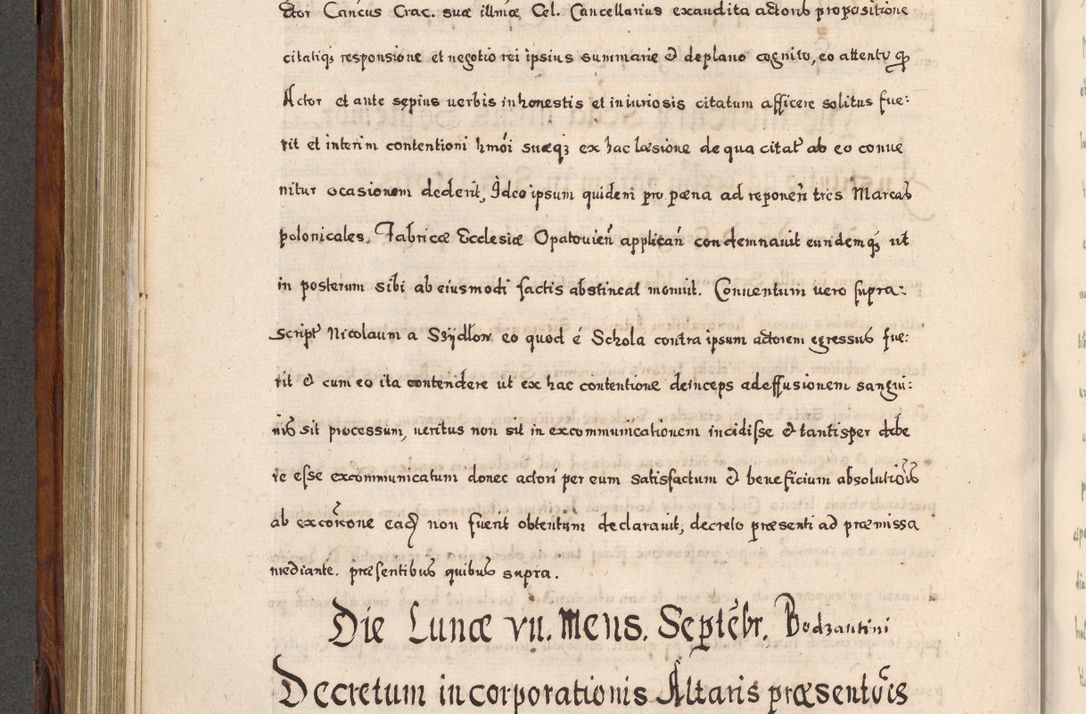 ctor Cancus Crac. suæ illmæ Cel. Cancellarius exaudita actoris propositione
citatiq; responsione et negotio rei ipsius summarie & deplano cognito, eo attento q
Actor et ante sepius uerbis inhonestis et iniuriosis citatum afficere solitus fue:
rit et interim contentioni hmoi suæq; ex hac læsione de qua citat ab eo conue
nitur ocasionem dederit, Ideo ipsum quidem pro pæna ad reponen tres Marcas
polonicales, Fabricæ Ecclesiæ Opatouien applican condemnauit eundemq; ut
in posterum sibi ab eiusmodi factis abstineat monuit. Conuentum uero supra:
script Nicolaum a Szydlow eo quod é Schola contra ipsum actorem egressus fue:
rit & cum eo ita contendere ut ex hac contentione deinceps ad effusionem sangui:
nis sit processum, ueritus non sit in excommunicationem incidisse & tantisper debe
re esse excommunicatum donec actori per eum satisfactum & beneficium absolutiois
ab excoione ead non fuerit obtentum declarauit, decreto præsenti ad præmissa
mediante. præsentibus quibus supra.
Die Lunæ vii. Mens. Septébr. Bodzantini
Decretum incorporationis Altaris præsentóis